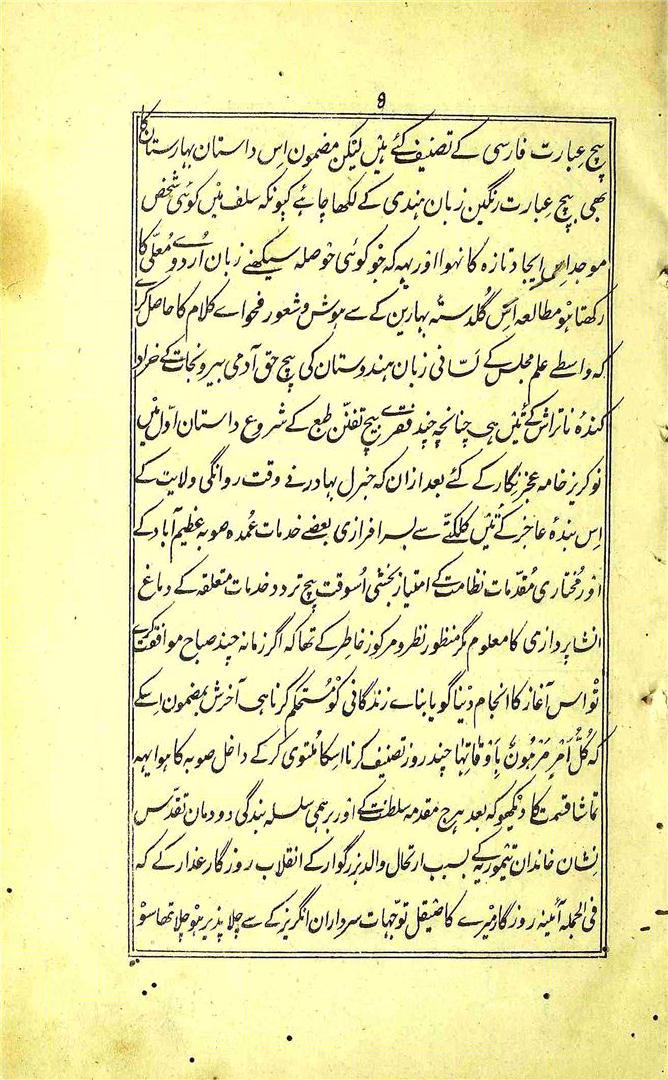 ۶
بیچ عبارت فارسی کے تصنیف کئے ہیں لیکن مضمون اِس داستان بہارستان کا
بھی بیچ عبارت رنگین زبان ہندی کے لکھا چاہئے کیونکہ سلف میں کوئی شخص
موجد اِس ایجاد تازہ کا نہوا اور یہہ کہ جو کوئی حوصلہ سیکھنے زبان اُردوے معلّی کا
رکھتا ہو مطالعہ اِس گلدستۂ بہارین کے سے ہوش و شعور فحواے کلام کا حاصل کرے
کہ واسطے علم مجلس کے لسّانی زبان ہندوستان کی بیچ حق آدمی بیرونجات کے خراد
کندۂ ناتراش کے تئیں ہی چنانچہ چند فقرے بیچ تفنّن طبع کے شروع داستان اوّل میں
نوکریز خامہ عجز نگار کے کئے بعد ازان کہ جنرل بہادر نے وقت روانگی ولایت کے
اِس بندۂ عاجز کے تئیں کلکتّے سے بسرافرازی بعضے خدمات عُمدہ صوبہ عظیم آباد کے
اور مُختاری مُقدّمات نظامت کے امتیاز بخشی اُسوقت بیچ تردد خدمات متعلقہ کے دماغ
انشا پردازی کا معلوم مگر منظور نظر و مرکوز خاطر کے تھا کہ اگر زمانہ چند صباح موافقت کرے
تو اس آغاز کا انجام دینا گویا بناے زندگانی کو مُستحکم کرنا ہی آخرش بمضمون اِسکے
کہ کُلُّ اَمرٍ مَرہُونٌ بِاَوقَاتِہَا چند روز تصنیف کرنا اِسکا مُلتوی کر کے داخل صوبہ کا ہوا یہہ
تماشا قسمت کا دیکھو کہ بعد ہرج مقدمہ سلطنت کے اور برہمی سلسلہ بندگی دودمان تقدّس
نشان خاندان تیموریہ کے بسبب ارتحال والد بزرگوار کے انقلاب روزگار غدار کے کہ
فی الجملہ آئینہ روزگار میرے کا صیقل توجّہات سرداران انگریز کے سے جلا پذیر ہو چلا تھا سو